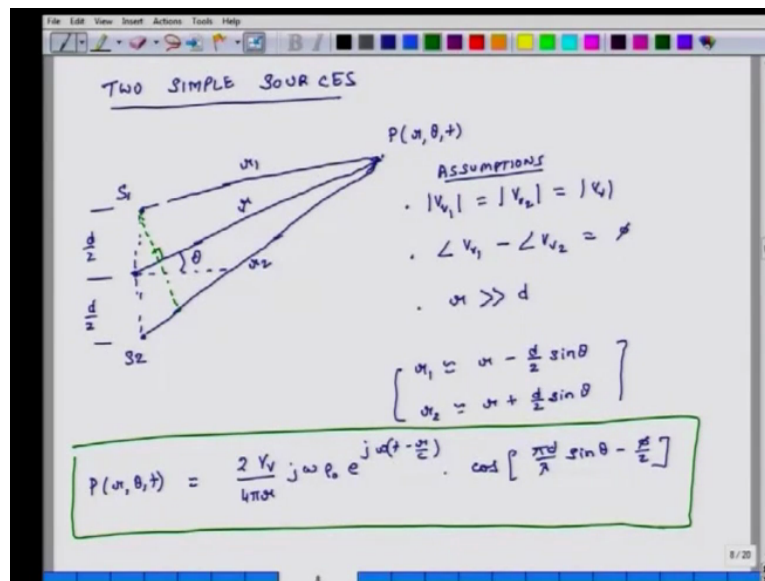 File Edit View Insert Actions Tools Help
TWO SIMPLE SOURCES
P(r,θ,t)
r₁
ASSUMPTIONS
S₁
r
· |Vᵥ₁| = |Vᵥ₂| = |Vᵥ|
d/2
θ
r₂
· ∠Vᵥ₁ - ∠Vᵥ₂ = φ
d/2
· r >> d
S2
r₁ ≃ r - d/2 sinθ
r₂ ≃ r + d/2 sinθ
P(r,θ,t) = 2Vᵥ/4πr jωρ₀ e^jω(t-r/c) · cos[πd/λ sinθ - φ/2]
8/20